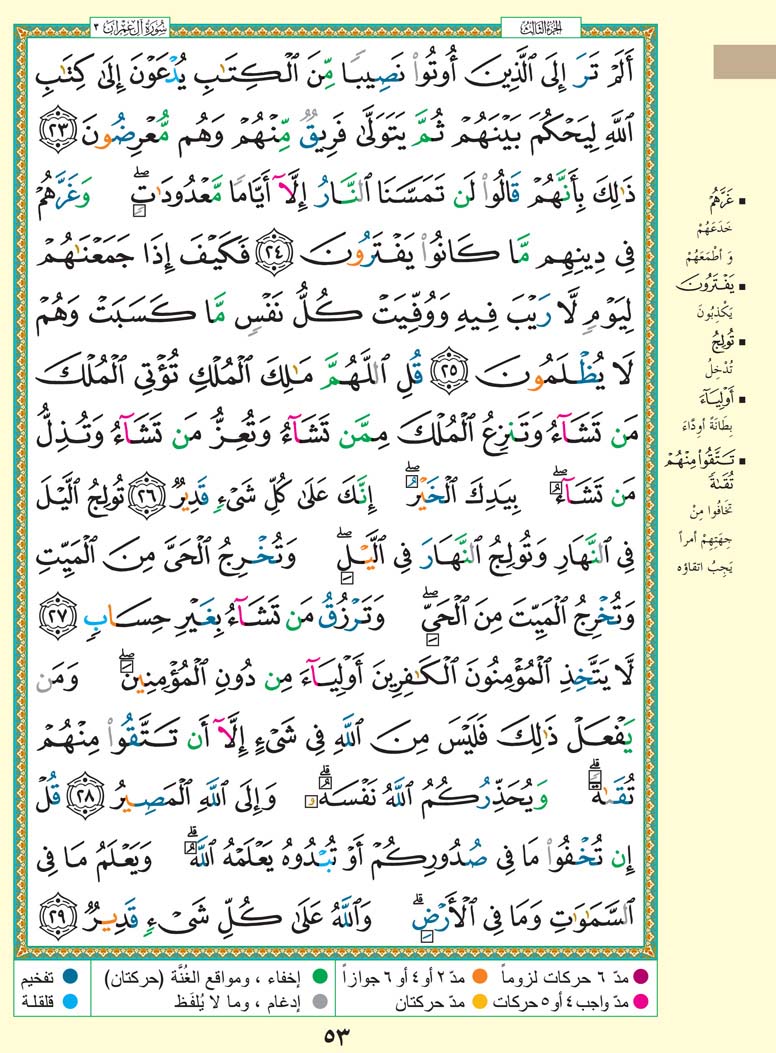 الجزء الثالث
سورة آل عمران ٣
أَلَمْ تَرَ إِلَى الَّذِينَ أُوتُوا نَصِيبًا مِّنَ الْكِتَابِ يُدْعَوْنَ إِلَىٰ كِتَابِ
اللَّهِ لِيَحْكُمَ بَيْنَهُمْ ثُمَّ يَتَوَلَّىٰ فَرِيقٌ مِّنْهُمْ وَهُم مُّعْرِضُونَ ٢٣
ذَٰلِكَ بِأَنَّهُمْ قَالُوا لَن تَمَسَّنَا النَّارُ إِلَّا أَيَّامًا مَّعْدُودَاتٍ ۖ وَغَرَّهُمْ
فِي دِينِهِم مَّا كَانُوا يَفْتَرُونَ ٢٤ فَكَيْفَ إِذَا جَمَعْنَاهُمْ
لِيَوْمٍ لَّا رَيْبَ فِيهِ وَوُفِّيَتْ كُلُّ نَفْسٍ مَّا كَسَبَتْ وَهُمْ
لَا يُظْلَمُونَ ٢٥ قُلِ اللَّهُمَّ مَالِكَ الْمُلْكِ تُؤْتِي الْمُلْكَ
مَن تَشَاءُ وَتَنزِعُ الْمُلْكَ مِمَّن تَشَاءُ وَتُعِزُّ مَن تَشَاءُ وَتُذِلُّ
مَن تَشَاءُ ۖ بِيَدِكَ الْخَيْرُ ۖ إِنَّكَ عَلَىٰ كُلِّ شَيْءٍ قَدِيرٌ ٢٦ تُولِجُ اللَّيْلَ
فِي النَّهَارِ وَتُولِجُ النَّهَارَ فِي اللَّيْلِ ۖ وَتُخْرِجُ الْحَيَّ مِنَ الْمَيِّتِ
وَتُخْرِجُ الْمَيِّتَ مِنَ الْحَيِّ ۖ وَتَرْزُقُ مَن تَشَاءُ بِغَيْرِ حِسَابٍ ٢٧
لَّا يَتَّخِذِ الْمُؤْمِنُونَ الْكَافِرِينَ أَوْلِيَاءَ مِن دُونِ الْمُؤْمِنِينَ ۖ وَمَن
يَفْعَلْ ذَٰلِكَ فَلَيْسَ مِنَ اللَّهِ فِي شَيْءٍ إِلَّا أَن تَتَّقُوا مِنْهُمْ
تُقَاةً ۗ وَيُحَذِّرُكُمُ اللَّهُ نَفْسَهُ ۗ وَإِلَى اللَّهِ الْمَصِيرُ ٢٨ قُلْ
إِن تُخْفُوا مَا فِي صُدُورِكُمْ أَوْ تُبْدُوهُ يَعْلَمْهُ اللَّهُ ۗ وَيَعْلَمُ مَا فِي
السَّمَاوَاتِ وَمَا فِي الْأَرْضِ ۗ وَاللَّهُ عَلَىٰ كُلِّ شَيْءٍ قَدِيرٌ ٢٩
غَرَّهُمْ
خَدَعَهُمْ
وَ أطْمَعَهُمْ
يَفْتَرُونَ
يَكْذِبُونَ
تُولِجُ
تُدْخِلُ
أَوْلِيَاءَ
بِطَانَةً أوِدَّاءَ
تَتَّقُوا مِنْهُمْ
تُقَاةً
تَخَافُوا مِنْ
جِهَتِهِمْ أمراً
يَجِبُ اتقاؤه
مدّ ٦ حركات لزوماً
مدّ ٢ أو ٤ أو ٦ جوازاً
إخفاء ، ومواقع الغُنَّة (حركتان)
تفخيم
مدّ واجب ٤ أو ٥ حركات
مدّ حركتان
إدغام ، وما لا يُلفَظ
قلقلة
٥٣